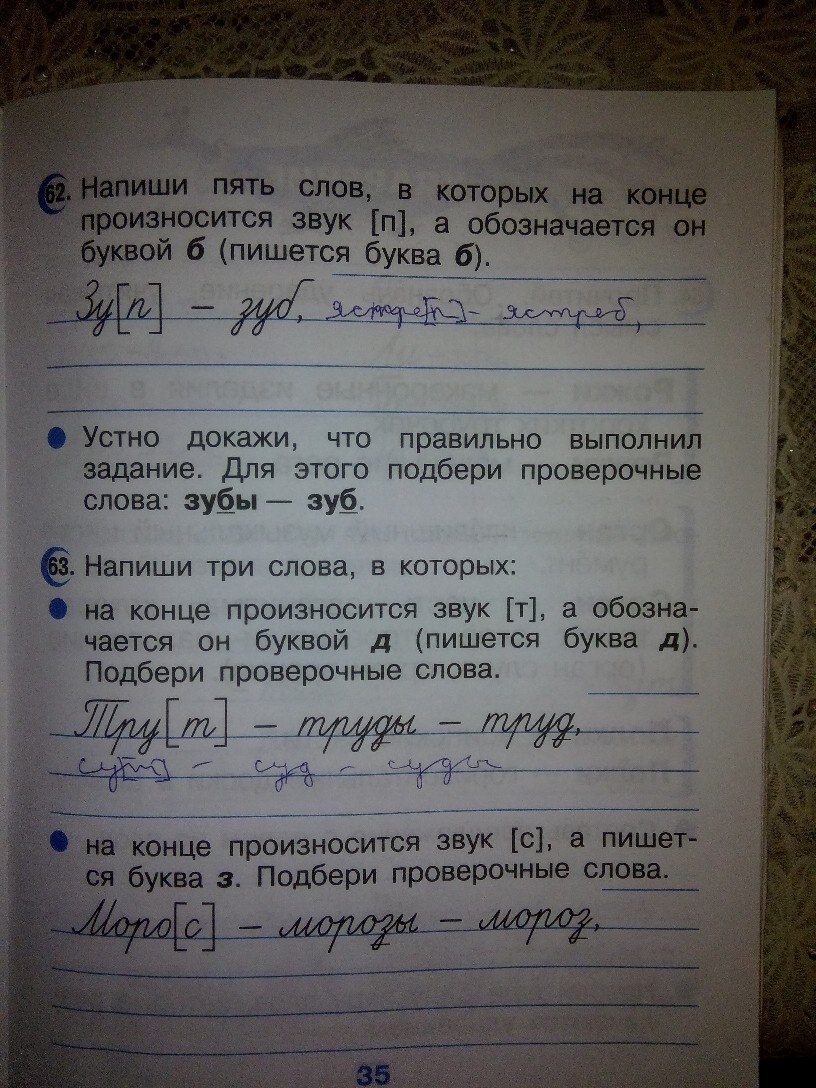 62. Напиши пять слов, в которых на конце
произносится звук [п], а обозначается он
буквой б (пишется буква б).
Зу[п] – зуб, ястре[п]- ястреб,
Устно докажи, что правильно выполнил
задание. Для этого подбери проверочные
слова: зубы — зуб.
63. Напиши три слова, в которых:
на конце произносится звук [т], а обозна-
чается он буквой д (пишется буква д).
Подбери проверочные слова.
Тру[т] – труды – труд,
су[т] - суд - суды
на конце произносится звук [с], а пишет-
ся буква з. Подбери проверочные слова.
Моро[с] – морозы – мороз,
35